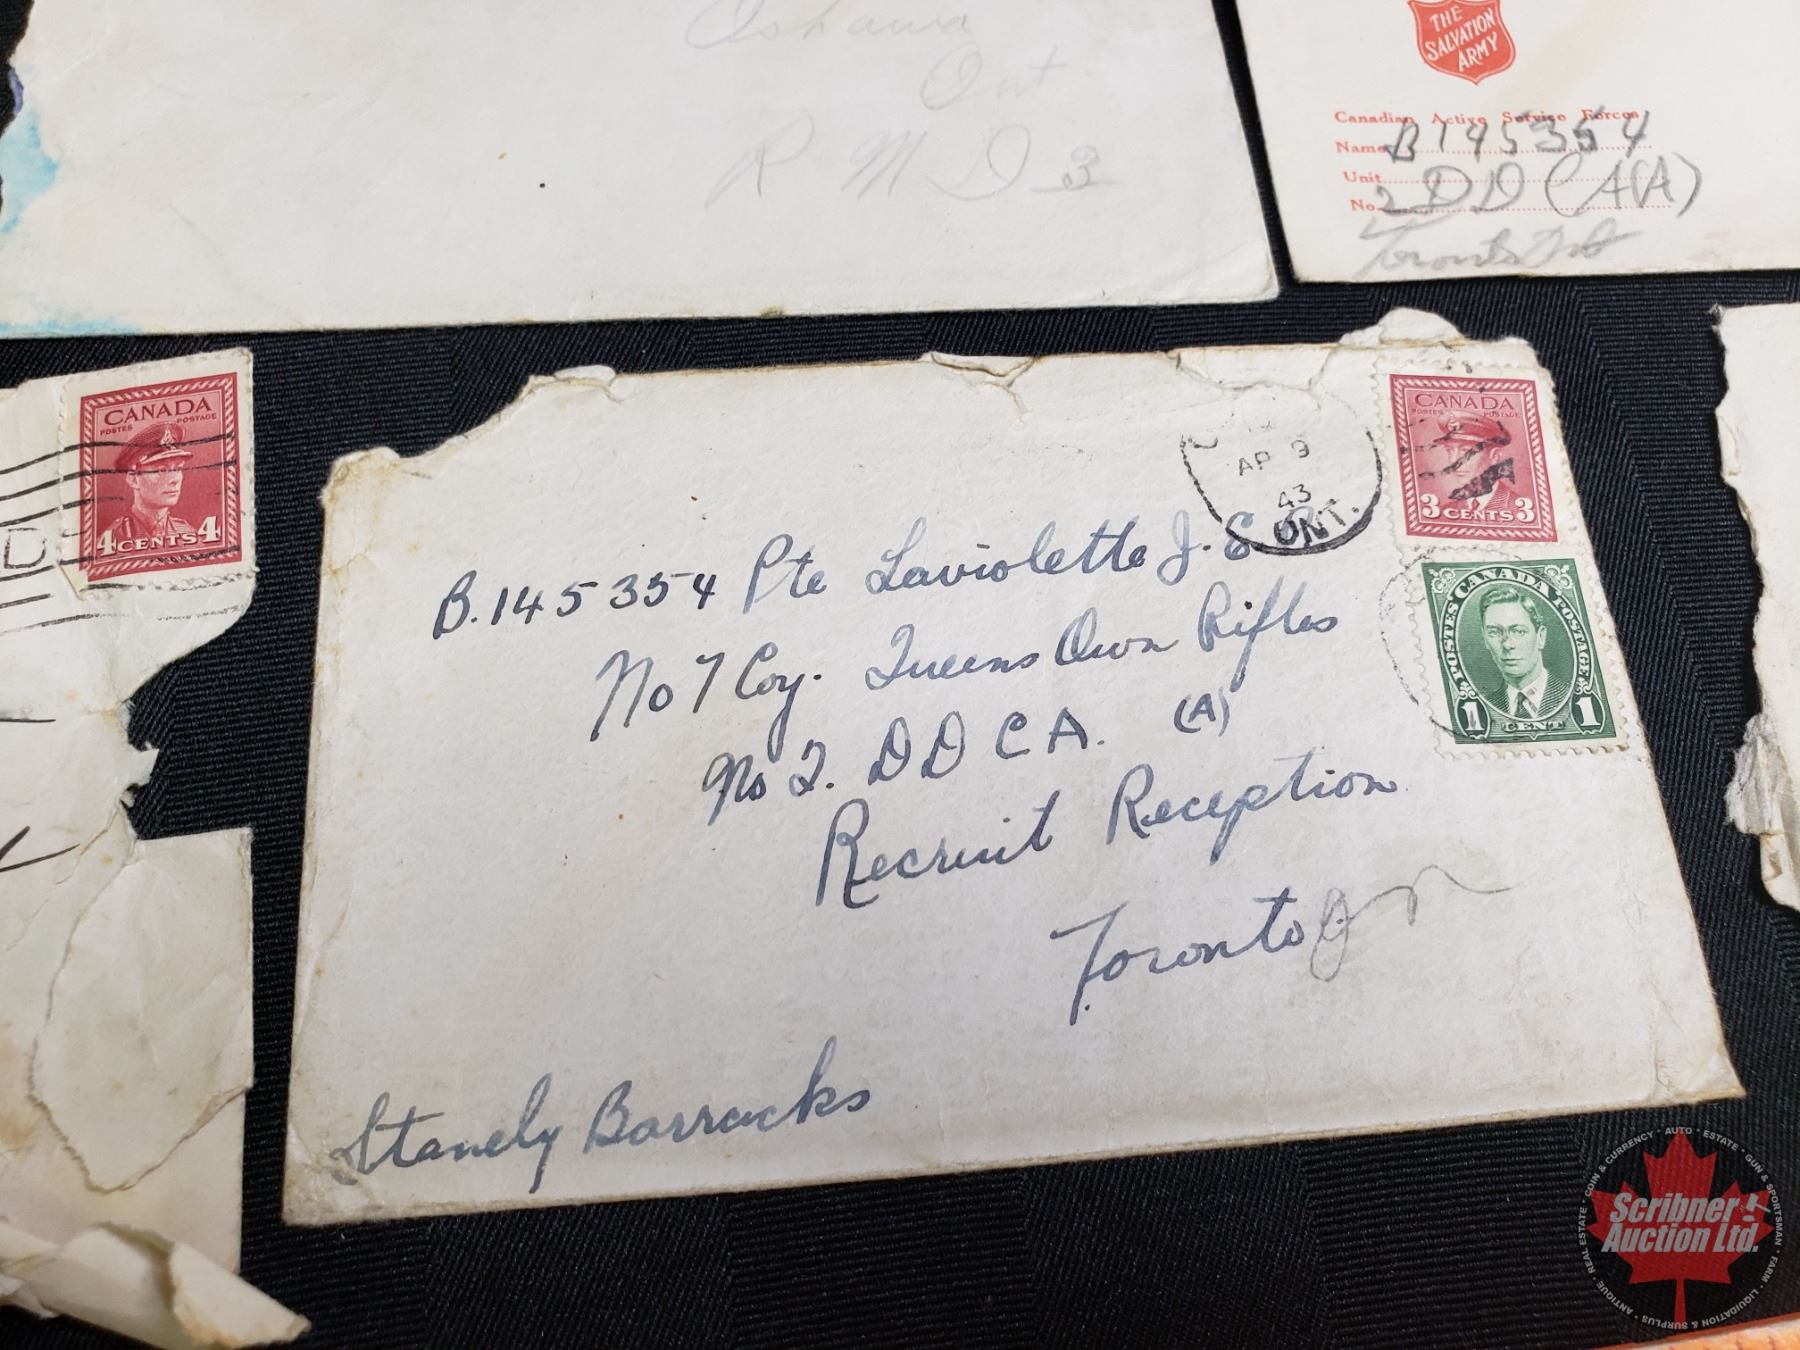 Oshawa
Ont
R M D 3
THE
SALVATION
ARMY
Canadian Active Service Forces
Name B 145354
Unit
No. 2 DD CA(A)
Toronto Ont
CANADA
POSTES POSTAGE
4 CENTS 4
D
AP 9
43
ONT.
CANADA
POSTES POSTAGE
3 CENTS 3
POSTES CANADA POSTAGE
1 CENT 1
B.145354 Pte Laviolette J. E.
No 7 Coy. Queens Own Rifles
No 2. D D C A. (A)
Recruit Reception
Toronto
Stanely Barracks
Scribner
Auction Ltd.
COIN & CURRENCY * AUTO * ESTATE * GUN & SPORTSMAN * FARM * LIQUIDATION & SURPLUS * ANTIQUE * REAL ESTATE *